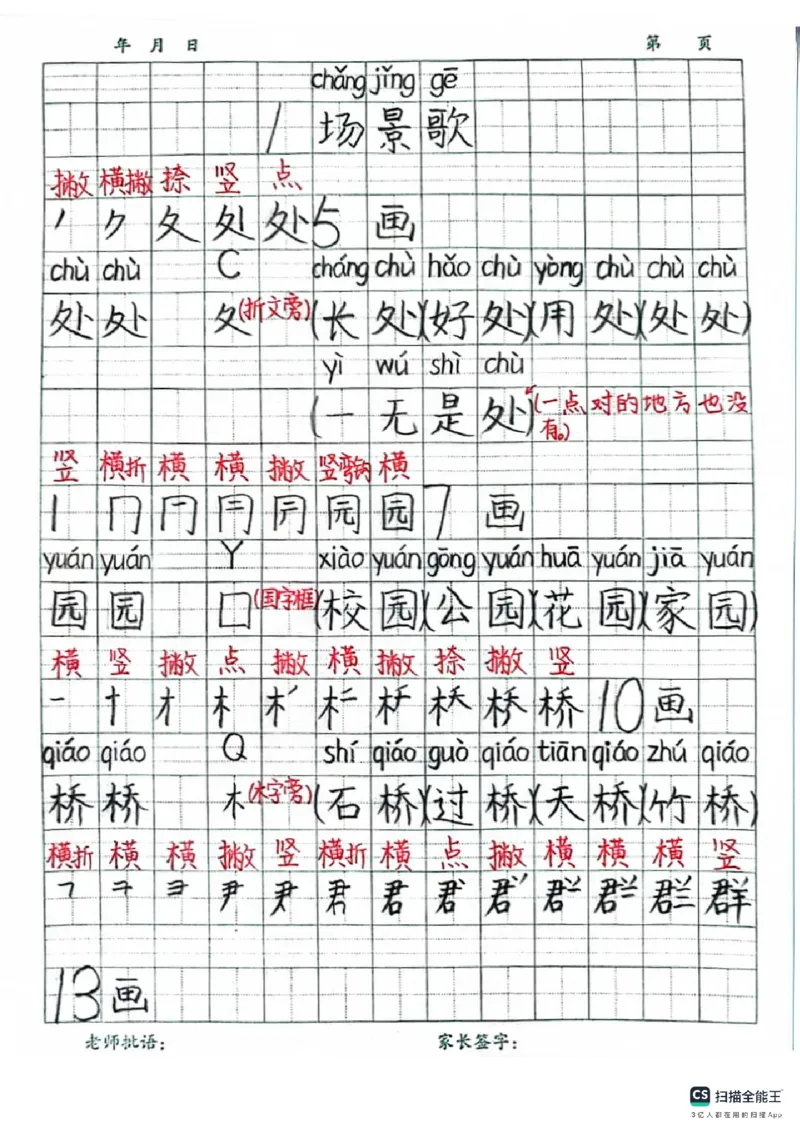 年 月 日 第 页
chǎng jǐng gē
1 场景歌
撇 横撇 捺 竖 点
丿 ク 夂 处 处 5 画
chù chù C cháng chù hǎo chù yòng chù chù chù
处 处 夂(折文旁) (长处)(好处)(用处)(处处)
yì wú shì chù
(一无是处) (一点对的地方也没
有。)
竖 横折 横 横 撇 竖弯钩 横
园 园 7 画
yuán yuán Y xiào yuán gōng yuán huā yuán jiā yuán
园 园 囗(国字框) (校园)(公园)(花园)(家园)
横 竖 撇 点 撇 横 撇 捺 撇 竖
一 十 才 木 桥 桥 10 画
qiáo qiáo Q shí qiáo guò qiáo tiān qiáo zhú qiáo
桥 桥 木(木字旁) (石桥)(过桥)(天桥)(竹桥)
横折 横 横 撇 竖 横折 横 点 撇 横 横 横 竖
尹 君 君 群
13 画
老师批语: 家长签字:
CS 扫描全能王
3亿人都在用的扫描App